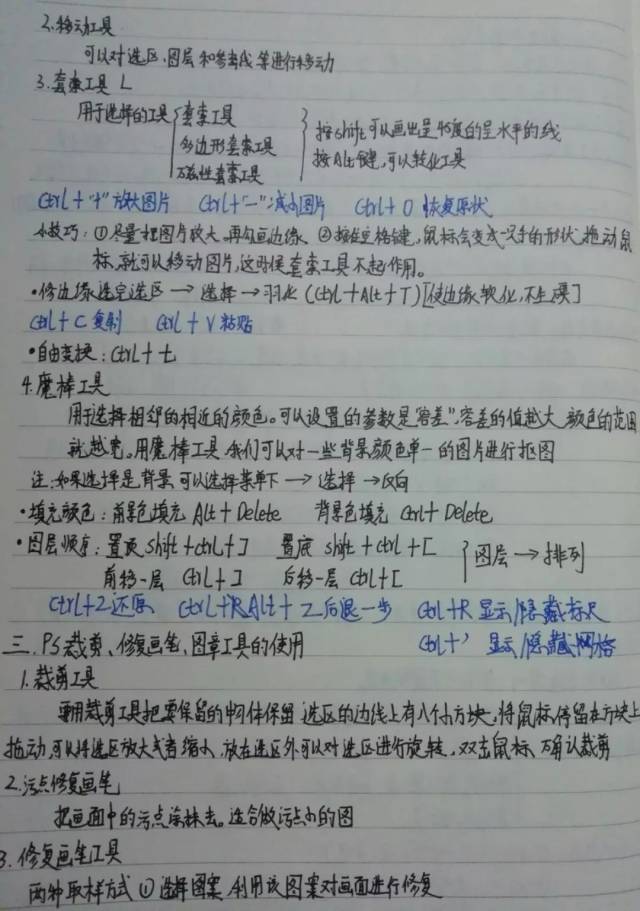 2.移动工具
可以对选区、图层和参考线等进行移动
3.套索工具 L
用于选择的工具 套索工具
多边形套索工具
磁性套索工具
按shift可以画出呈45度的呈水平的线
按Alt键,可以转化工具
Ctrl+"+"放大图片 Ctrl+"-":减小图片 Ctrl+0 恢复原状
小技巧:①尽量把图片放大,再勾画边缘 ②按住空格键,鼠标会变成一只手的形状,拖动鼠
标,就可以移动图片,这时侯套索工具不起作用。
·修边缘选完选区→选择→羽化(Ctrl+Alt+T)[使边缘软化,不生硬]
Ctrl+C复制 Ctrl+V粘贴
·自由变换:Ctrl+t
4.魔棒工具
用于选择相邻的相近的颜色。可以设置的参数是"容差",容差的值越大,颜色的范围
就越宽。用魔棒工具,我们可以对一些背景颜色单一的图片进行抠图
注:如果选择是背景,可以选择菜单下→选择→反向
·填充颜色:前景色填充 Alt+Delete 背景色填充 Ctrl+Delete
·图层顺序:置顶 shift+ctrl+] 置底 shift+ctrl+[
前移一层 Ctrl+] 后移一层 Ctrl+[
图层→排列
Ctrl+Z还原 Ctrl+Alt+Z后退一步 Ctrl+R 显示/隐藏标尺
Ctrl+' 显示/隐藏网格
三、PS裁剪、修复画笔、图章工具的使用
1.裁剪工具
要用裁剪工具把要保留的物体保留,选区的边线上有八个小方块,将鼠标停留在方块上
拖动,可以将选区放大或者缩小,放在选区外可以对选区进行旋转,双击鼠标,可确认裁剪
2.污点修复画笔
把画面中的污点涂抹去。适合做污点小的图
3.修复画笔工具
两种取样方式 ①选择图案,利用该图案对画面进行修复